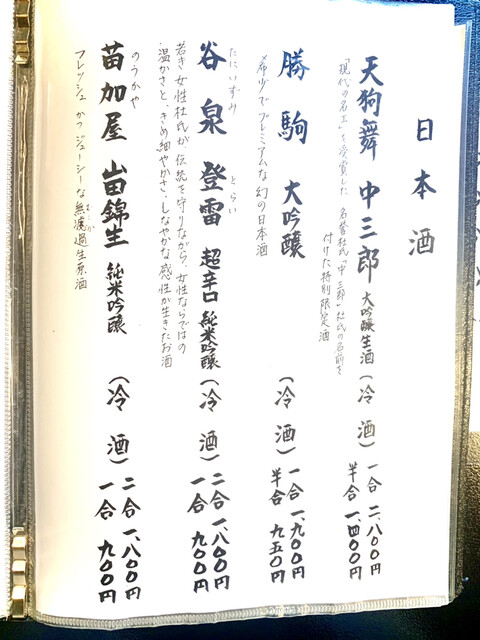 日本酒
天狗舞 中三郎 大吟醸生酒(冷酒)
一合 二、八〇〇円
半合 一、四〇〇円
「現代の名工」を受賞した 名誉杜氏「中 三郎」杜氏の名前を
付けた特別限定酒
勝駒 大吟醸 (冷酒)
一合 一、九〇〇円
半合 九五〇円
希少でプレミアムな幻の日本酒
たにいずみ とらい
谷泉 登雷 超辛口 純米吟醸 (冷酒)
二合 一、八〇〇円
一合 九〇〇円
若き女性杜氏が、伝統を守りながら、女性ならではの
温かさと、きめ細やかさ・しなやかな感性が生きたお酒
のうかや
苗加屋 山田錦生 純米吟醸 (冷酒)
二合 一、八〇〇円
一合 九〇〇円
フレッシュ かつ ジューシーな無濾過生原酒